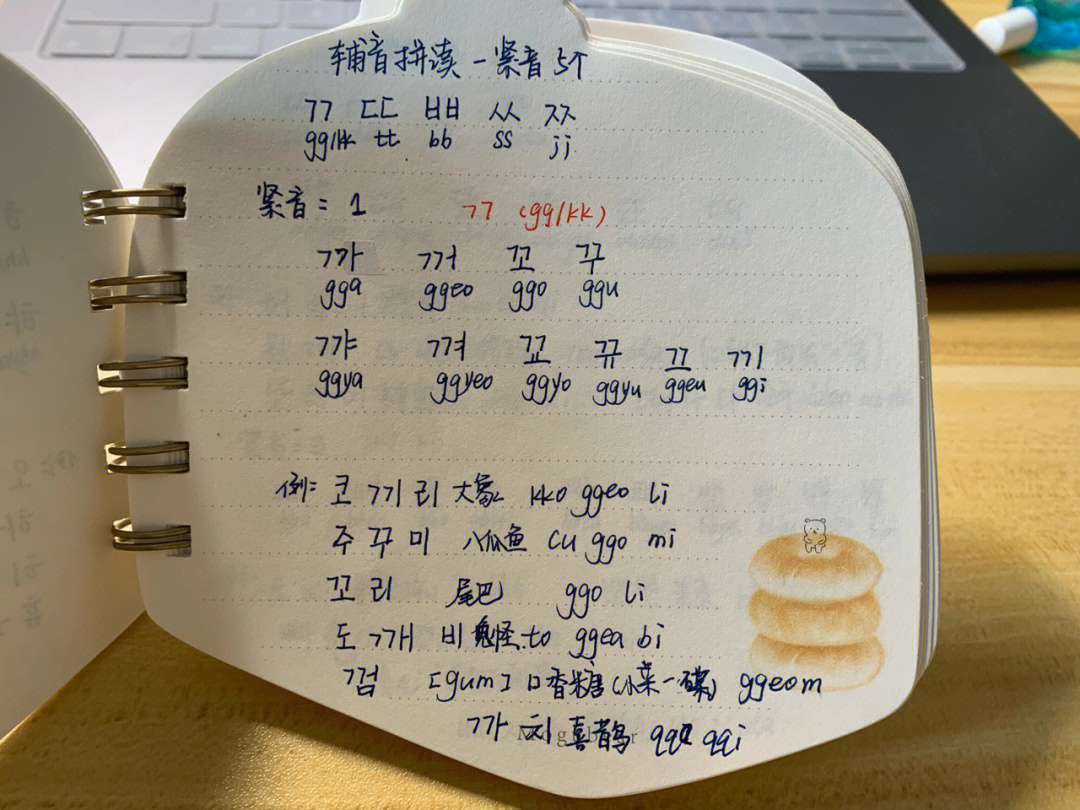 辅音拼读-紧音5个
ㄲ ㄸ ㅃ ㅆ ㅉ
gg/kk tt bb ss jj
紧音:1 ㄲ (gg/kk)
까 꺼 꼬 꾸
gga ggeo ggo ggu
꺄 껴 꾜 뀨 끄 끼
ggya ggyeo ggyo ggyu ggeu ggi
例: 코끼리 大象 kko ggeo li
주꾸미 八爪鱼 cu ggo mi
꼬리 尾巴 ggo li
도깨비 鬼怪 to ggea bi
껌 [gum] 口香糖 ggeom
까치 喜鹊 ggi